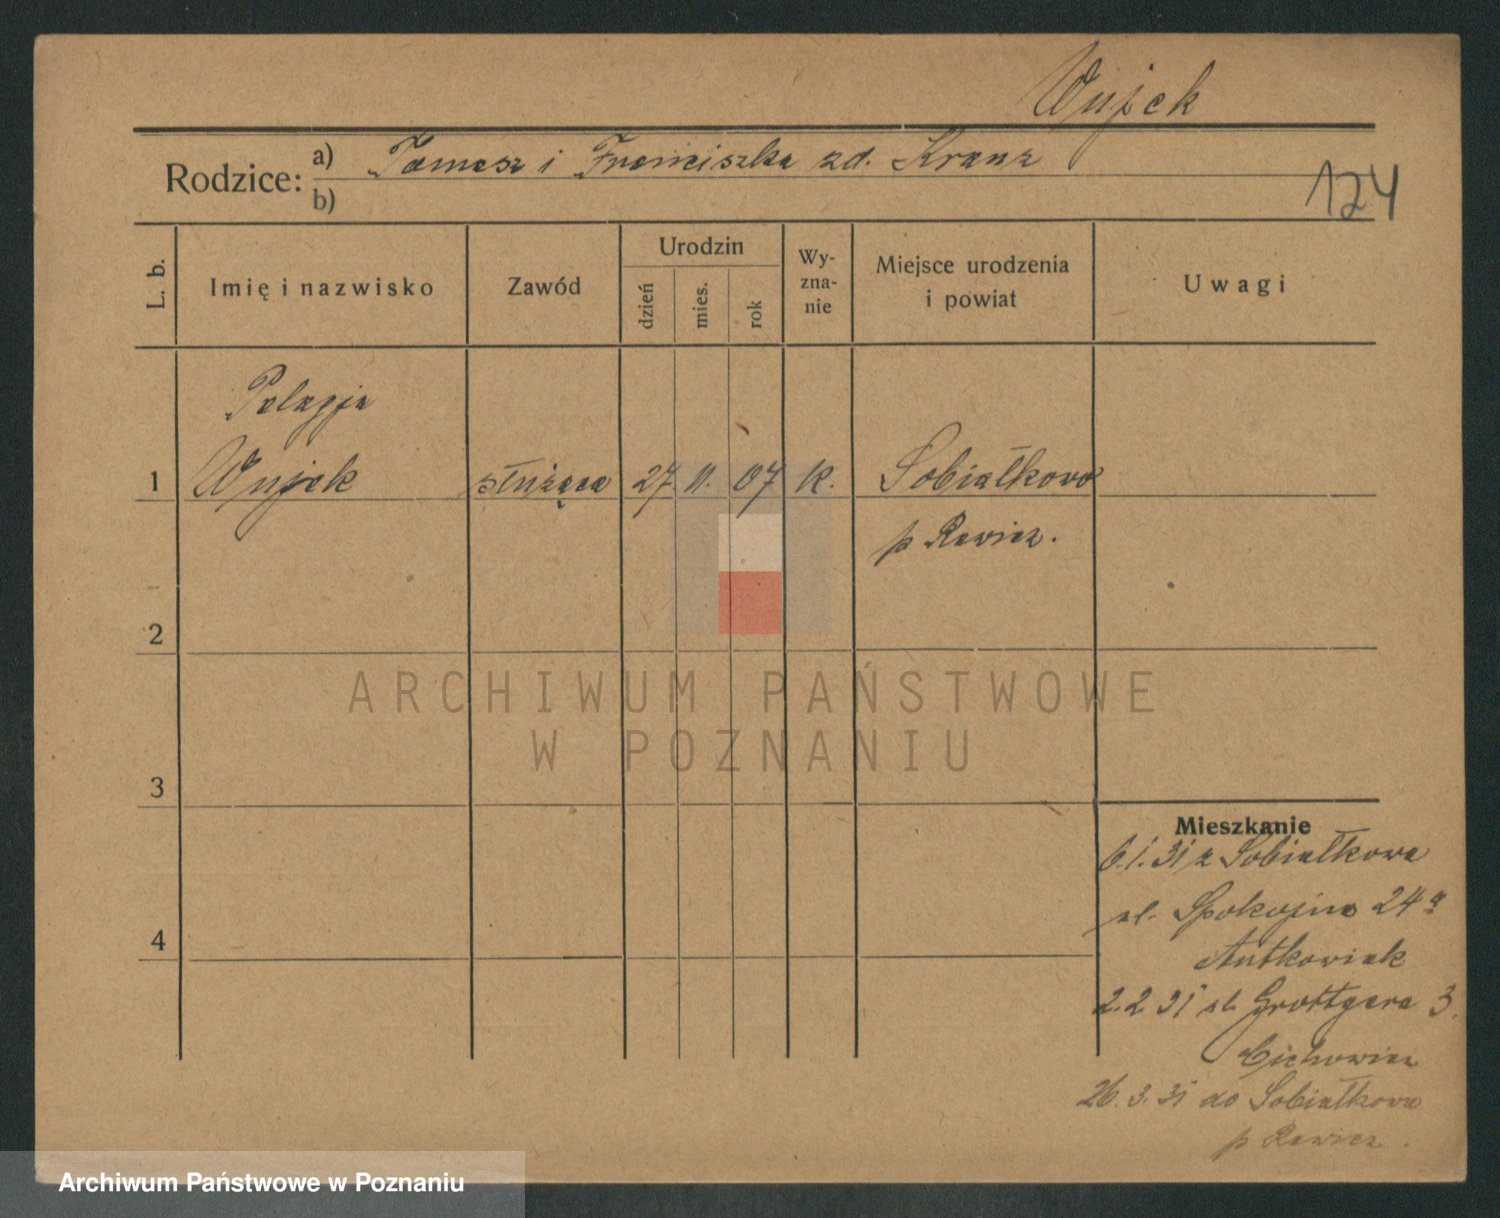 Wujek
Rodzice: a) Tomasz i Franciszka zd. Kranz
b)
124
L. b. Imię i nazwisko Zawód Urodzin dzień mies. rok Wy-zna-nie Miejsce urodzenia i powiat Uwagi
Pelagja
1 Wujek służąca 27 11. 07 k. Sobiałkowo
p Rawicz.
2
ARCHIWUM PAŃSTWOWE
W POZNANIU
3
Mieszkanie
6.1.31 z Sobiałkowa
ul. Spokojna 24a
4
Antkowiak
2.2.31 ul. Grottgera 3.
Cichowicz
26.3.31 do Sobiałkowa
p Rawicz.
Archiwum Państwowe w Poznaniu